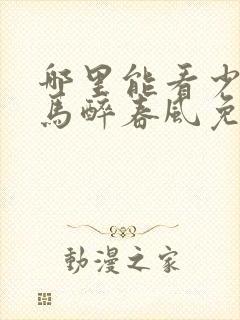 哪里能看少
馬醉春风免
動漫之家